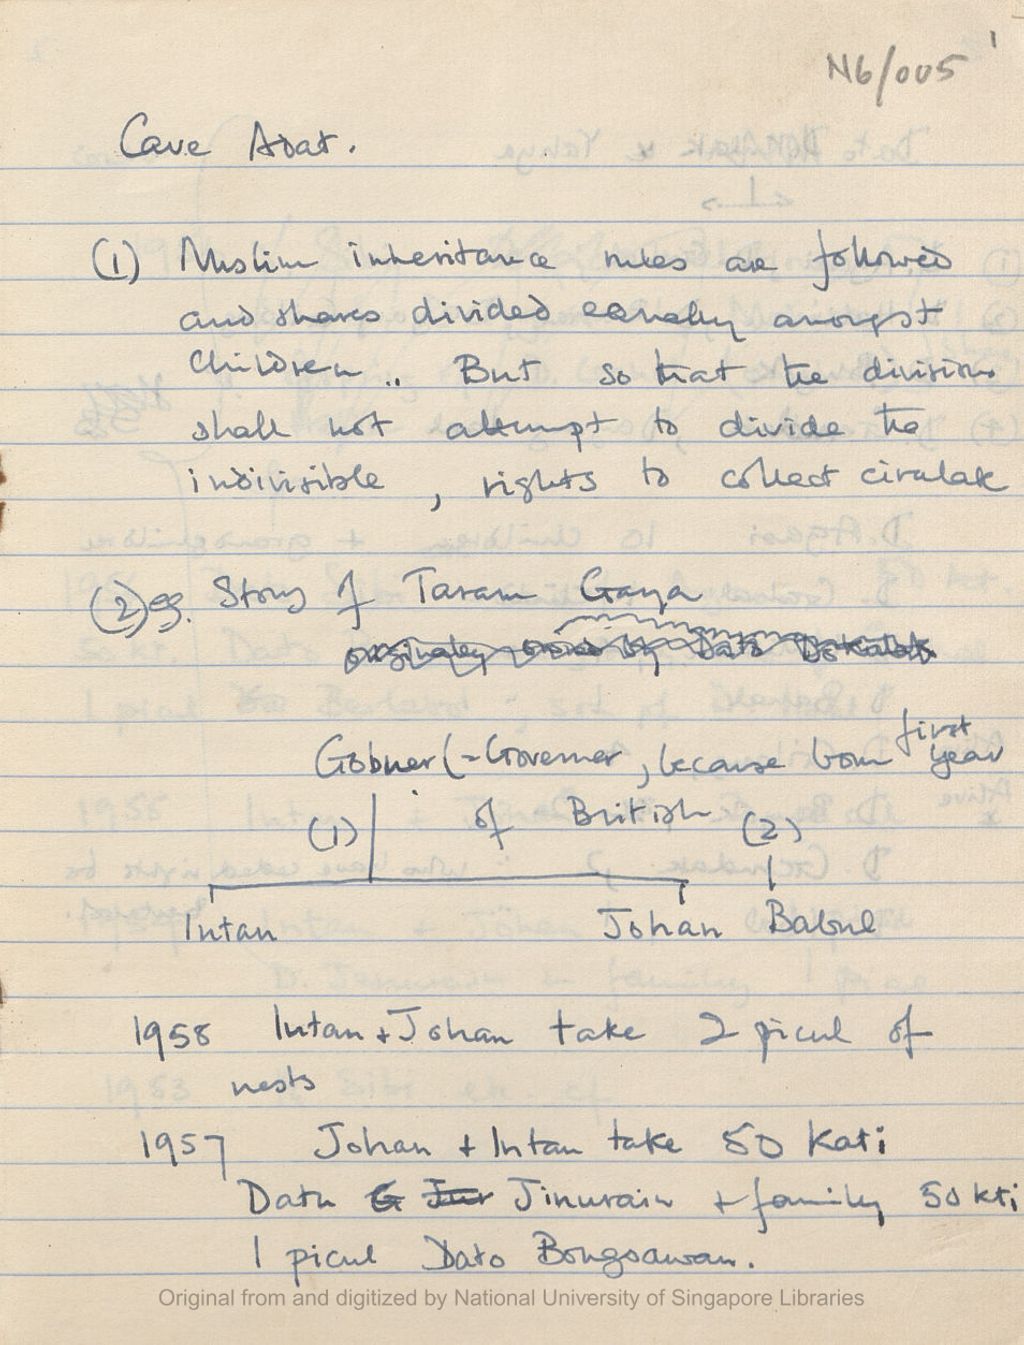 N6/005 1
Cave Adat.
(1) Muslim inheritance rules are followed
and shares divided equally amongst
Children.. But so that the division
shall not attempt to divide the
indivisible, rights to collect circulate
(2) eg. Story of Taram Gaya
originally owned by Dato
Gobner (=Governer, because born first year
(1) of British (2)
Intan Johan Babul
1958 Intan + Johan take 2 picul of
nests
1957 Johan + Intan take 50 Kati
Datu G Jinurain + family 50 kti
1 picul Dato Bongsawan.
Original from and digitized by National University of Singapore Libraries